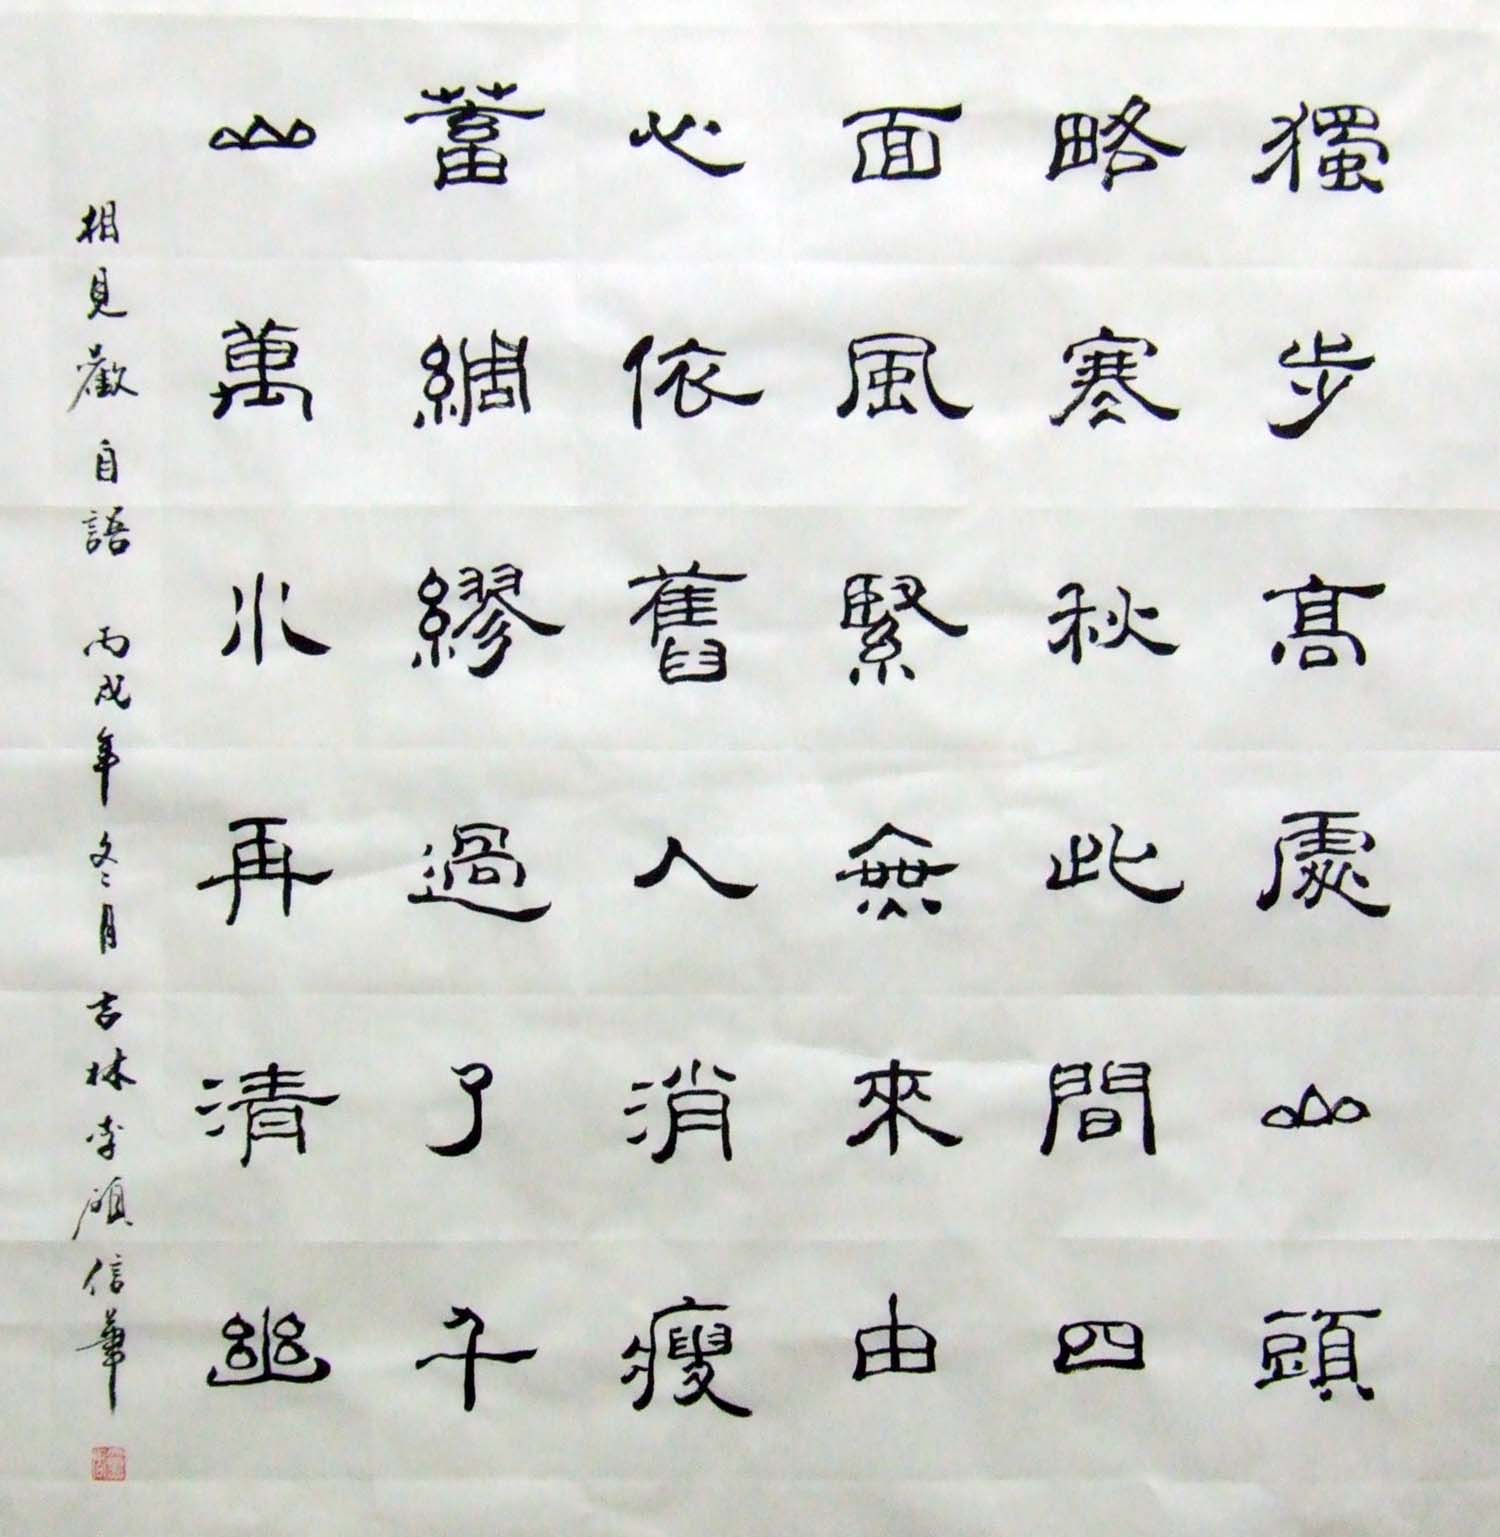 獨步高處山頭
略寒秋此間四
面風緊無來由
心依舊人消瘦
蓄綢繆過了千
山萬水再清幽
相見歡自語 丙戌年冬月吉林李碩信筆